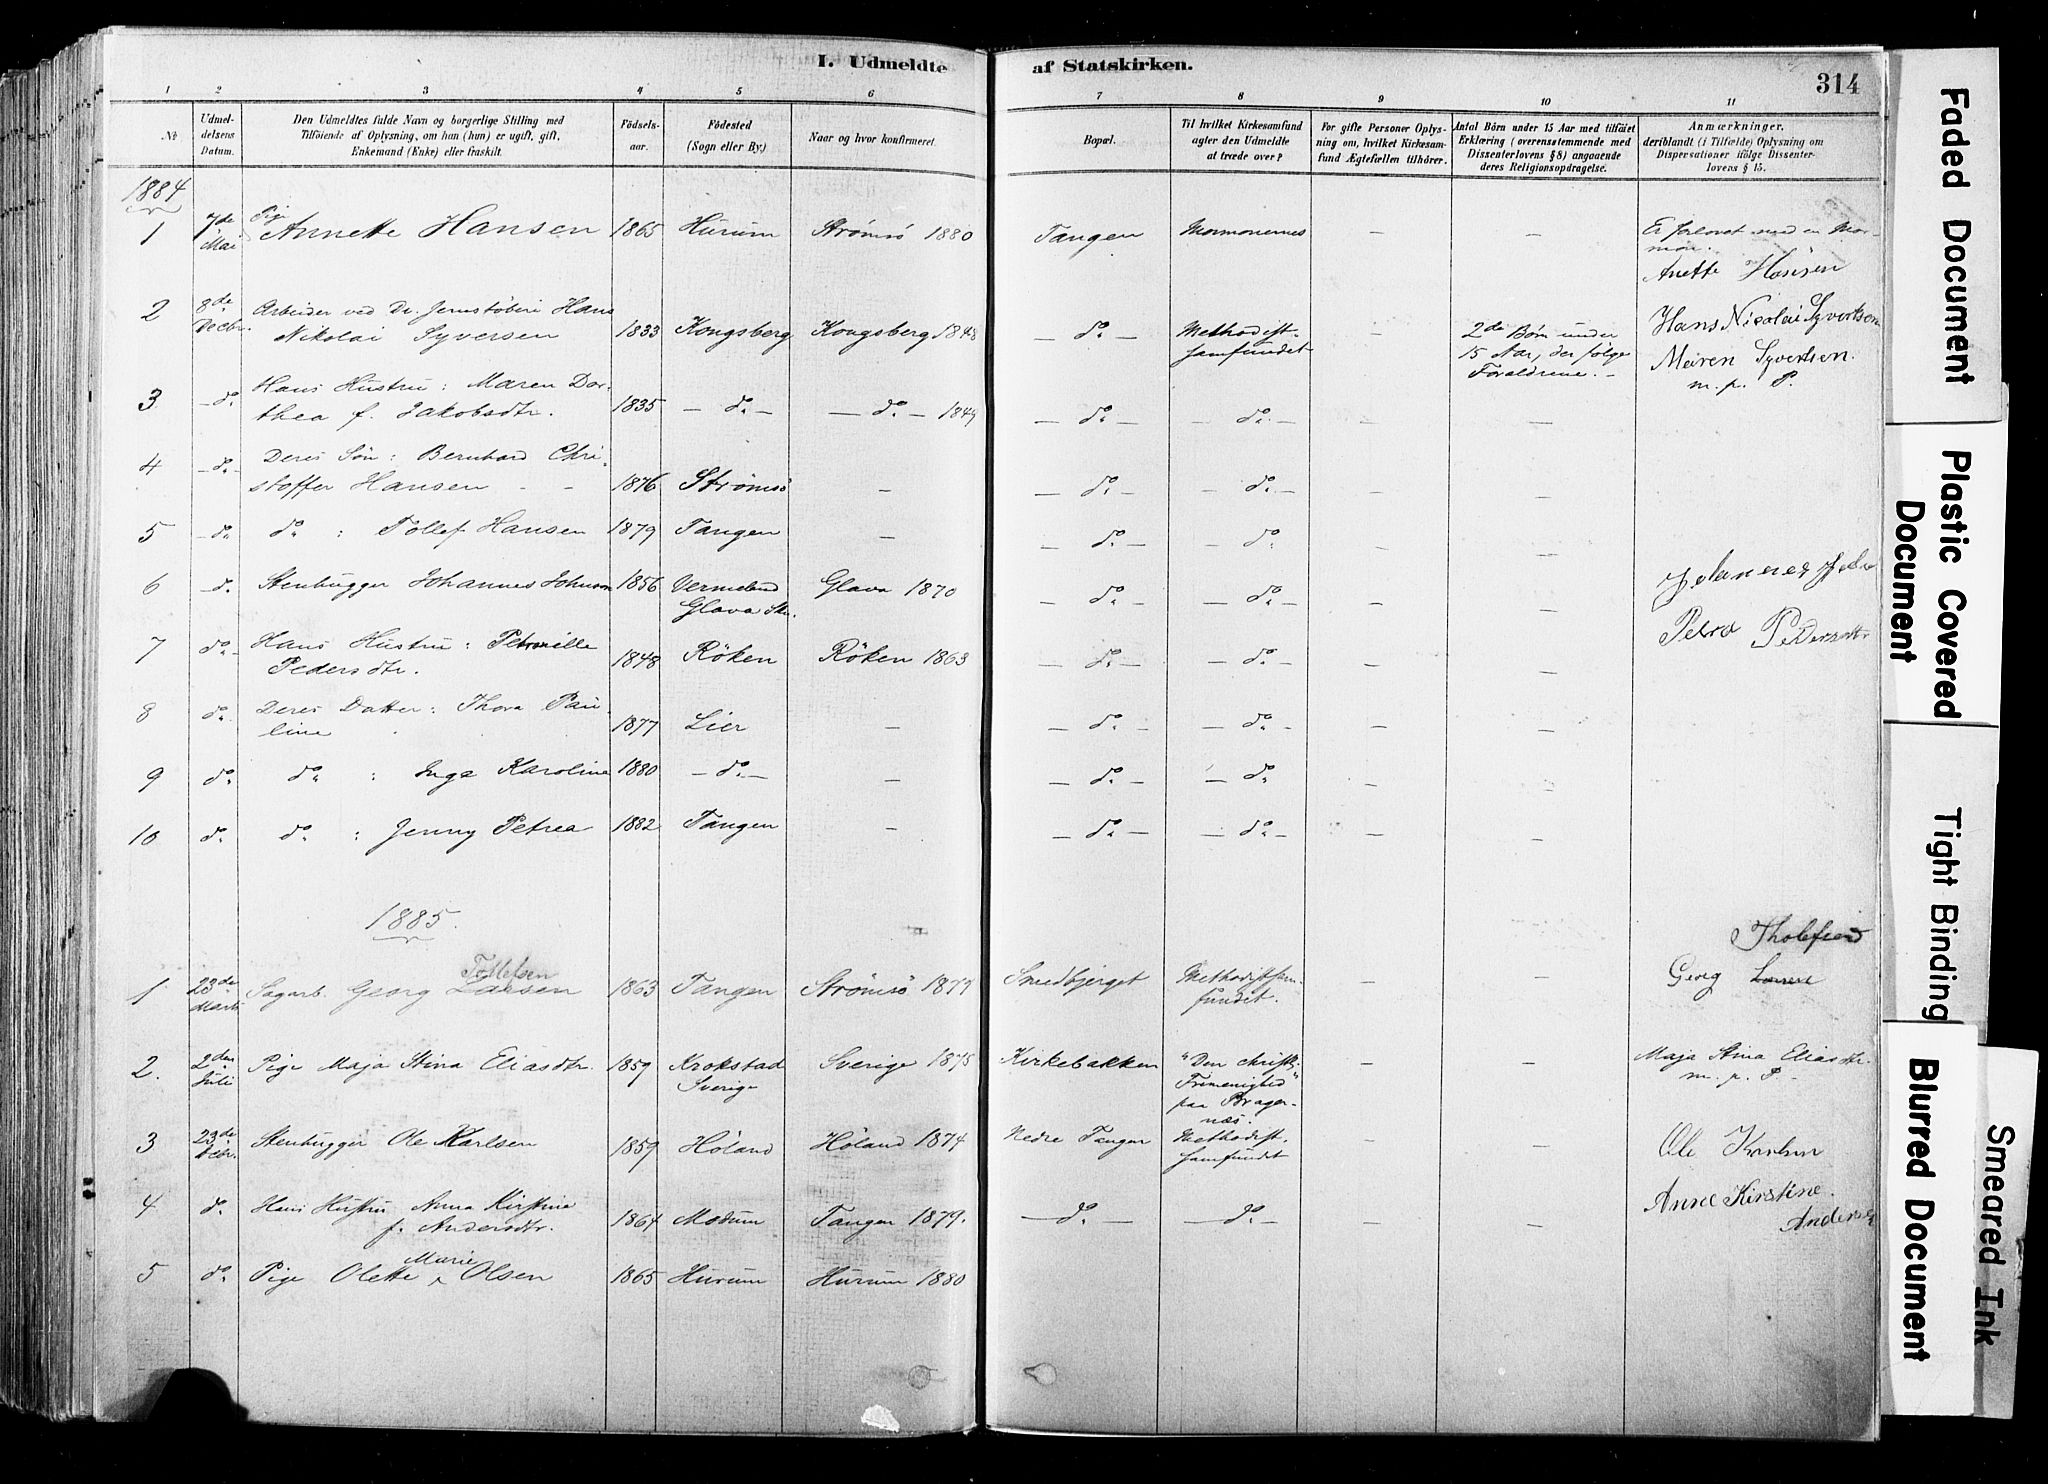 I. Udmeldte af Statskirken.
314
1 2 3 4 5 6 7 8 9 10 11
No
Udmel-
delsens
Datum.
Den Udmeldtes fulde Navn og borgerlige Stilling med
Tilføiende af Oplysning, om han (hun) er ugift, gift,
Enkemand (Enke) eller fraskilt.
Fødsels-
aar.
Fødested
(Sogn eller By.)
Naar og hvor konfirmeret.
Bopæl.
Til hvilket Kirkesamfund
agter den Udmeldte
at træde over?
For gifte Personer Oplys-
ning om, hvilket Kirkesam-
fund Ægtefællen tilhører.
Antal Børn under 15 Aar med tilføiet
Erklæring (overensstemmende med
Dissenterlovens § 8) angaaende
deres Religionsopdragelse.
Anmærkninger,
deriblandt (i Tilfælde) Oplysning om
Dispensationer ifølge Dissenter-
lovens § 15.
1884
1 7de Mai Pige Annette Hansen 1865 Hurum Strømsø 1880 Tangen Mormonernes – – Er forlovet med en Mor-
mon.
Anette Hansen
2 8de Decbr. Arbeider ved Dr. Jernstøberi Hans
Nikolai Syversen 1833 Kongsberg Kongsberg 1848 – do – Methodist-
samfundet – 2de Børn under
15 Aar, der følge
Forældrene. –
Hans Nicolai Syvertsen
Maren Syvertsen.
m. p. P.
3 – do Hans Hustru: Maren Dor-
thea f. Jakobsdtr. 1835 – do – – do – 1849 – do – – do – – –
4 – do – Deres Søn: Bernhard Chri-
stoffer Hansen – – 1876 Strømsø – – do – – do – – –
5 – do do : Tollef Hansen 1879 Tangen – – do – – do – –
6 – do Stenhugger Johannes Johnson 1856 Vermeland
Glava Skn. Glava 1870 – do – – do – – – Johannes
7 do – Hans Hustru: Petronille
Pedersdtr. 1848 Røken Røken 1863 – do – – do – – – Petro Pedersdtr
8 do Deres Datter: Thora Pau-
line 1877 Lier – – do – – do – – –
9 do do : Inga Karoline 1880 – do – – – do – – do – –
10 do do : Jenny Petrea 1882 Tangen – – do – – do – – –
1885.
1 23de Marts Sagarb. Georg Tollefsen
Larsen 1863 Tangen Strømsø 1877 Smedbjerget Methodistsam-
fundet. – –
Georg
2. 2den Juli Pige Maja Stina Eliasdtr. 1859 Krokstad
Sverige Sverige 1875 Kirkebakken "Den christl.
Frimenighed"
paa Brager-
næs. – – Maja Stina Eliasdtr.
m. p. P. –
3 23de Stenhugger Ole Karlsen 1859 Høland Høland 1874 Nedre Tangen Methodist-
samfundet – – Ole Karlsen
4 do Hans Hustru Anna Kirstine
f. Andersdtr. 1864 Modum Tangen 1879. – do – – do – – – Anne Kirstine.
Anders
5 do Pige Olette Marie Olsen 1865 Hurum Hurum 1880
Faded Document
Plastic Covered Document
Tight Binding
Blurred Document
Smeared Ink